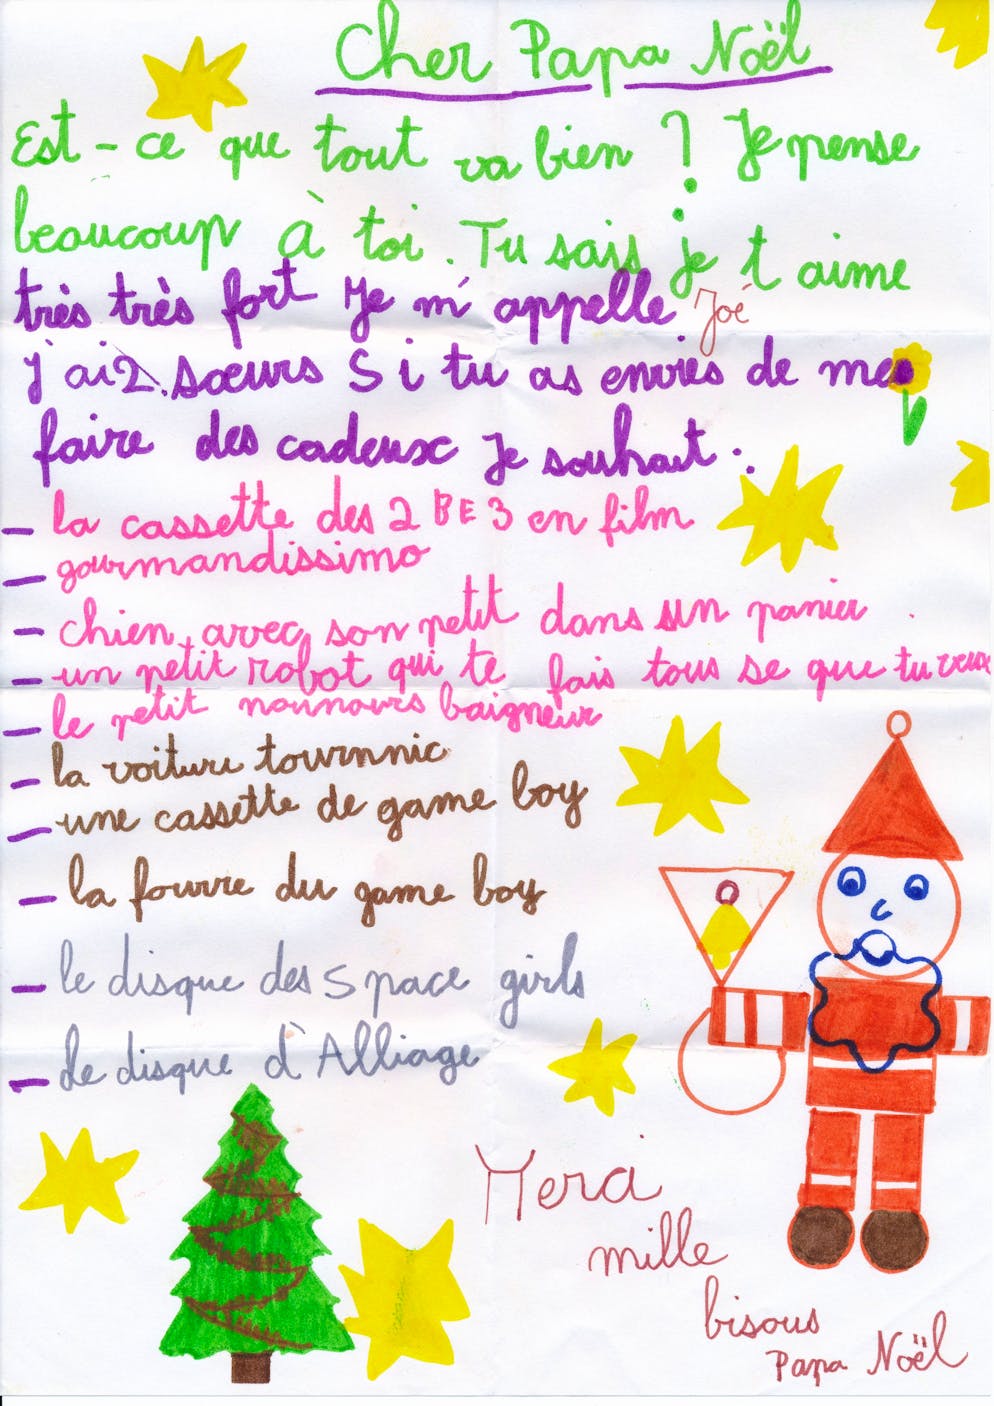 Cher Papa Noël
Est-ce que tout va bien ? Je pense
beaucoup à toi. Tu sais je t aime
très très fort Je m'appelle Zoé
J'ai 2 sœurs Si tu as envies de me
faire des cadeux Je souhait :
- la cassette des 2 BE 3 en film
- gourmandissimo
- chien avec son petit dans un panier
- un petit robot qui te fais tous se que tu veux
- le petit nounours baigneur
- la voiture tournnic
- une cassette de game boy
- la fourre du game boy
- le disque des Space girls
- Le disque d'Alliage
Merci
mille
bisous
Papa Noël